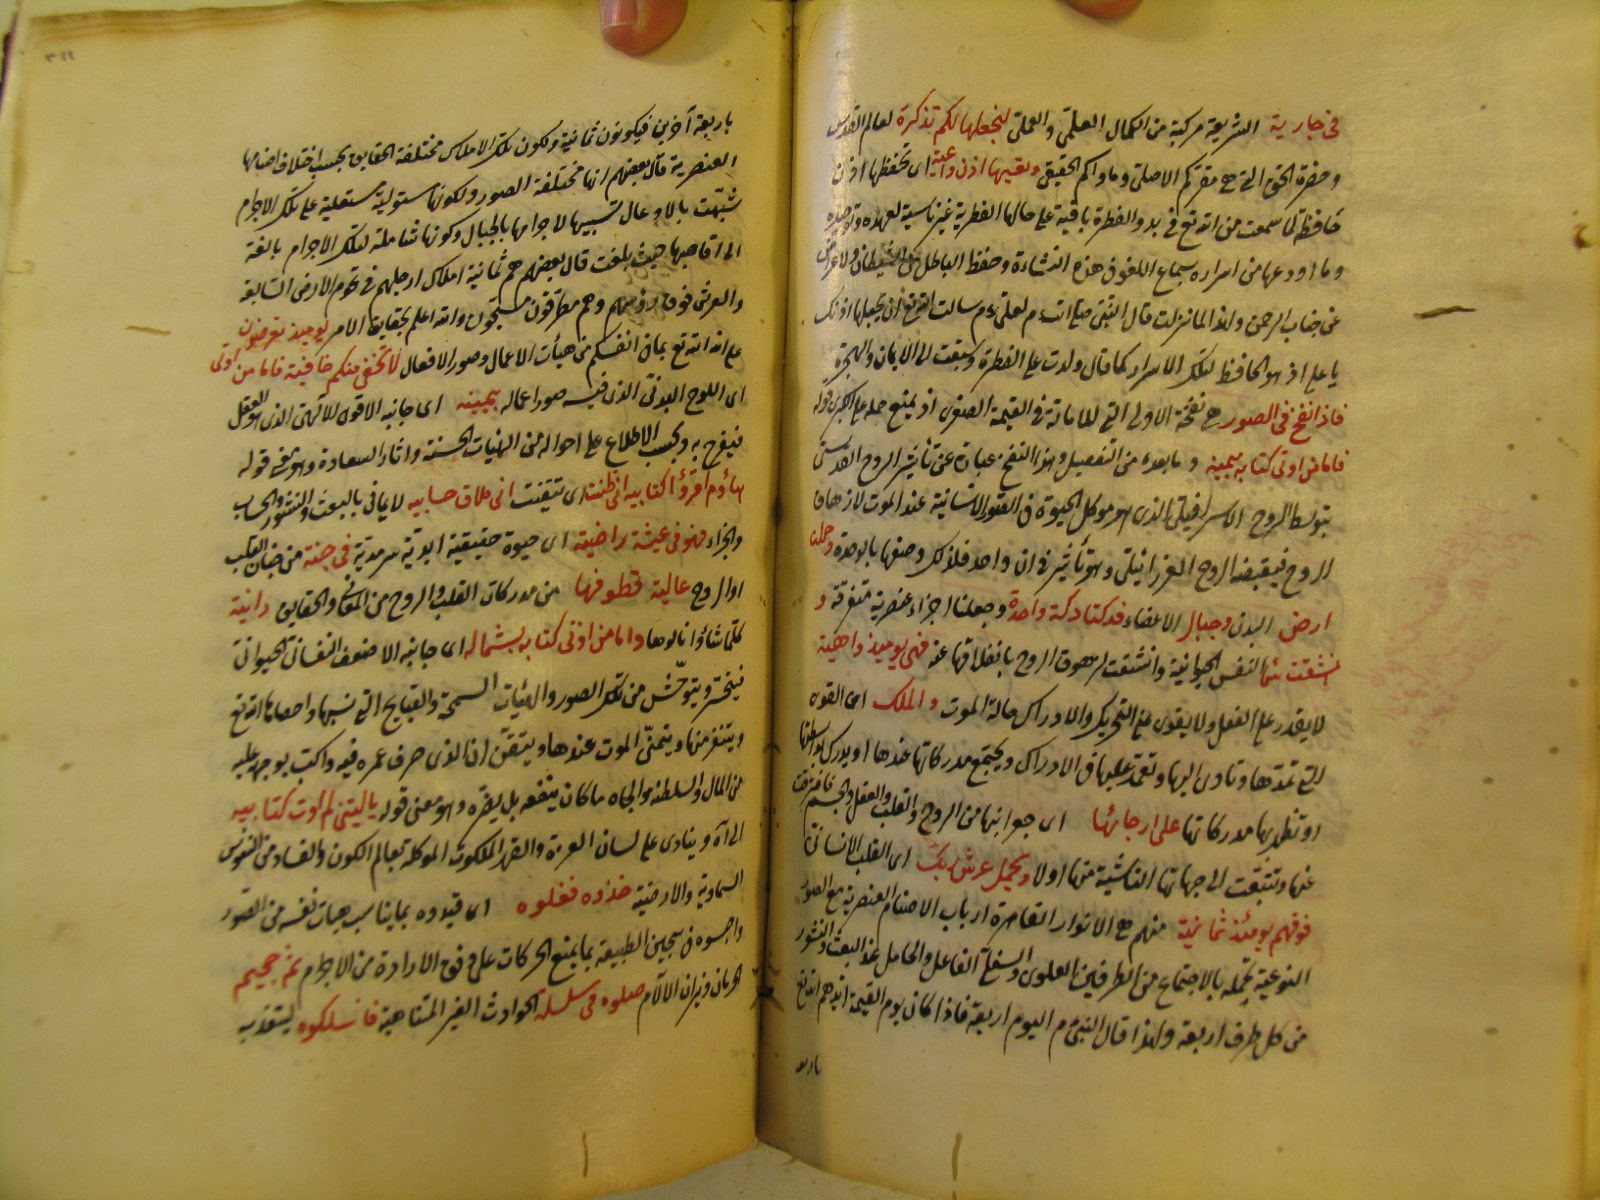 فى جارية الشريعة مركبة من الكمال العلمى والعملى لنجعلها لكم تذكرة لعالم القدس
وحضرة الحق التى هى مقركم الاصلى وماواكم الحقيقى وتعيها اذن واعية اى تحفظها اذن
حافظة لما سمعت من الله تع فى بدو الفطرة باقية على حالها الفطرية غير ناسية لعهده وتوحيده
وما اودعها من اسراره بسماع اللغو فى هذه النشاءة وحفظ الباطل من الشيطان والاعراض
عن جناب الرحمن ولهذا لما نزلت قال النبى صلى الله م لعلى ع م سالت الله تع ان يجعلها اذنك
يا على اذ هو الحافظ لتلك الاسرار كما قال ولدت على الفطرة وسبقت الى الايمان والهجرة
فاذا نفخ فى الصور هى نفخة الاولى التى للاماتة فى القيمة الصغرى اذ يمنع حمله على الكبرى قوله
فاما من اوتى كتابه بيمينه وما بعده من التفصيل وهذا النفخ عبارة عن تأثير الروح القدسى
بتوسط الروح الاسرافيلى الذى هو موكل الحيوة فى الصور الانسانية عند الموت لازهاق
الروح فيقبضه الروح العزرائيلى وهو تأثير فى ان واحد فلذلك وصفها بالوحدة وحملت
ارض البدن وجبال الاعضاء فدكتا دكة واحدة وجعلتا اجزاء عنصرية متفرقة و
انشقت سماء النفس الحيوانية وانشقت لزهوق الروح بانفلاقها عنه فهى يومئذ واهية
لا يقدر على الفعل ولا يقوى على التحريك والادراك حالة الموت والملك اى القوى
التى تمدها وتاوى اليها وتعتمد عليها فى الادراك ويجتمع مدركاتها عندها او يدرك بواسطتها
او تظهر بها مدركاتها على ارجائها اى جوانبها من الروح والقلب والعقل والجسم فافترقت
عنها وتشعبت الى جهاتها الناشية منها اولا ويحمل عرش ربك اى القلب الانسانى
فوقهم يومئذ ثمانية منهم هى الانوار القاهرة ارباب الاصنام العنصرية مع الصور
النوعية يحمله بالاجتماع من الطرفين العلوى والسفلى الفاعل والحامل عند البعث والنشور
من كل طرف اربعة ولهذا قال النبى ع م اليوم اربعة فاذا كان يوم القيمة ايدهم الله تع
باربعة
باربعة آخرين فيكونون ثمانية ولكون تلك الاملاك مختلفة الحقايق بحسب اختلاف اصنامها
العنصرية قال بعضهم انها مختلفة الصور ولكونها مستولية مستعلية على تلك الاجرام
شبهت بالاوعال تشبيها لاجرامها بالجبال وكونها شاملة لتلك الاجرام بالغة
الى اقاصيها حيث بلغت قال بعضهم هم ثمانية املاك ارجلهم فى تخوم الارض السابعة
والعرش فوق رؤسهم وهم مطرقون مسبحون والله اعلم بحقايق الامر يومئذ تعرضون
على الله تع بما فى انفسكم من هيأت الاعمال وصور الافعال لا تخفى منكم خافية فاما من اوتى
اى اللوح البدنى الذى فيه صور اعماله بيمينه اى جانبه الاقوى الالهى الذى هو العقل
فيفرح به ويحب الاطلاع على احواله من الهيات الحسنة واثار السعادة وهو معنى قوله
هاؤم اقرؤا كتابيه انى ظننت اى تيقنت انى ملاق حسابيه لايمانى بالبعث والنشور والحساب
والجزاء فهو فى عيشة راضية اى حيوة حقيقية ابدية سرمدية فى جنة من جنان القلب
او الروح عالية قطوفها من مدركات القلب والروح من المعانى والحقايق دانية
كلما شاؤا نالوها واما من اوتى كتابه بشماله اى جانبه الاضعف النفسانى الحيوانى
فيتحسر ويتوحش من تلك الصور والهيات السمجة والقبايح التى نسيها واحصاها الله تع
ويتنفر منها ويتمنى الموت عندها ويتيقن ان الذى صرف عمره فيه واكب بوجهه عليه
من المال والسلطنة والجاه ما كان ينفعه بل يضره وهو معنى قوله يا ليتنى لم اوت كتابيه
الى آه وينادى على لسان العزة والقهر الملكوت الموكلة بعالم الكون والفساد من النفوس
السماوية والارضية خذوه فغلوه اى قيدوه بما يناسب هيات نفسه من الصور
واحبسوه فى سجين الطبيعة بما يمنع الحركات على وفق الارادة من الاجرام ثم جحيم
الحرمان ونيران الآلام صلوه فى سلسلة الحوادث الغير المتناهية فاسلكوه ليتعذب